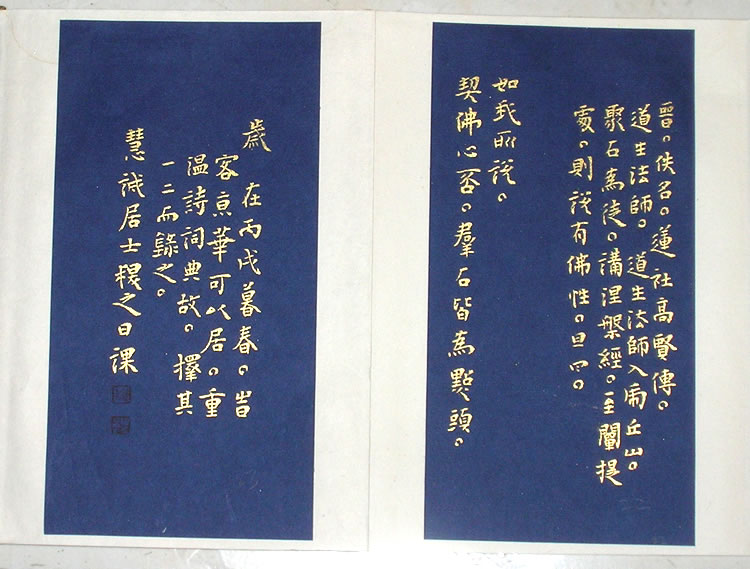 晉。佚名。蓮社高賢傳。
道生法師。道生法師入虎丘山。
聚石為徒。講涅槃經。至闡提
處。則說有佛性。且曰。
如我所說。
契佛心否。羣石皆為點頭。
歲在丙戌暮春。旹
客京華可以居。重
溫詩詞典故。擇其
一二而錄之。
慧誠居士稷之日課